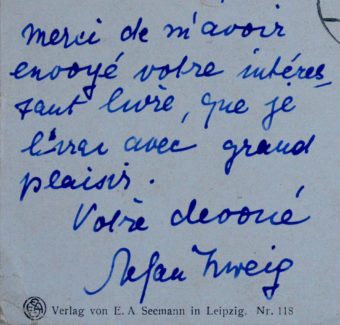 merci de m'avoir
envoyé votre intéres-
sant livre, que je
lirai avec grand
plaisir.
Votre dévoué
Stefan Zweig
Verlag von E. A. Seemann in Leipzig. Nr. 118